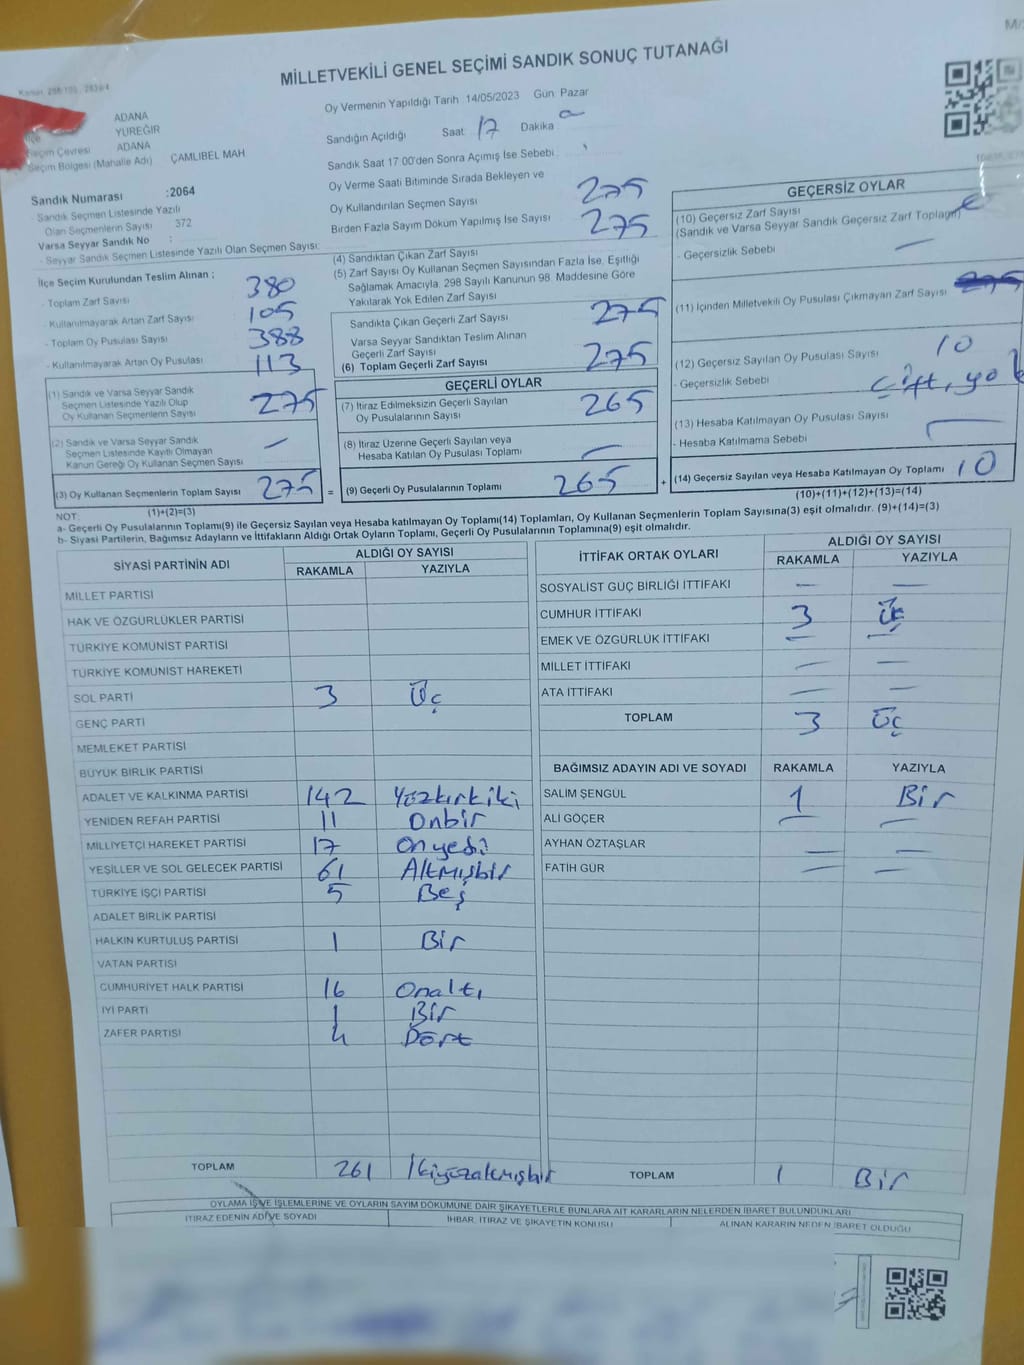 MİLLETVEKİLİ GENEL SEÇİMİ SANDIK SONUÇ TUTANAĞI
ADANA
İlçe YÜREĞİR
Seçim Çevresi ADANA
Seçim Bölgesi (Mahalle Adı) ÇAMLIBEL MAH
Sandık Numarası :2064
- Sandık Seçmen Listesinde Yazılı
Olan Seçmenlerin Sayısı 372
Varsa Seyyar Sandık No :
- Seyyar Sandık Seçmen Listesinde Yazılı Olan Seçmen Sayısı:
Oy Vermenin Yapıldığı Tarih 14/05/2023 Gün: Pazar
Sandığın Açıldığı Saat 17 Dakika
Sandık Saat 17 00'den Sonra Açılmış İse Sebebi
Oy Verme Saati Bitiminde Sırada Bekleyen ve
Oy Kullandırılan Seçmen Sayısı 275
Birden Fazla Sayım Döküm Yapılmış İse Sayısı 275
İlçe Seçim Kurulundan Teslim Alınan ;
- Toplam Zarf Sayısı 380
- Kullanılmayarak Artan Zarf Sayısı 105
- Toplam Oy Pusulası Sayısı 388
- Kullanılmayarak Artan Oy Pusulası 113
(1) Sandık ve Varsa Seyyar Sandık
Seçmen Listesinde Yazılı Olup
Oy Kullanan Seçmenlerin Sayısı 275
(2) Sandık ve Varsa Seyyar Sandık
Seçmen Listesinde Kayıtlı Olmayan
Kanun Gereği Oy Kullanan Seçmen Sayısı —
(3) Oy Kullanan Seçmenlerin Toplam Sayısı 275
(1)+(2)=(3)
(4) Sandıktan Çıkan Zarf Sayısı
(5) Zarf Sayısı Oy Kullanan Seçmen Sayısından Fazla İse, Eşitliği
Sağlamak Amacıyla, 298 Sayılı Kanunun 98. Maddesine Göre
Yakılarak Yok Edilen Zarf Sayısı
Sandıkta Çıkan Geçerli Zarf Sayısı 275
Varsa Seyyar Sandıktan Teslim Alınan
Geçerli Zarf Sayısı
(6) Toplam Geçerli Zarf Sayısı 275
GEÇERLİ OYLAR
(7) İtiraz Edilmeksizin Geçerli Sayılan
Oy Pusulalarının Sayısı 265
(8) İtiraz Üzerine Geçerli Sayılan veya
Hesaba Katılan Oy Pusulası Toplamı —
= (9) Geçerli Oy Pusulalarının Toplamı 265
GEÇERSİZ OYLAR
(10) Geçersiz Zarf Sayısı
(Sandık ve Varsa Seyyar Sandık Geçersiz Zarf Toplamı)
- Geçersizlik Sebebi —
(11) İçinden Milletvekili Oy Pusulası Çıkmayan Zarf Sayısı
(12) Geçersiz Sayılan Oy Pusulası Sayısı 10
- Geçersizlik Sebebi Çift, yok
(13) Hesaba Katılmayan Oy Pusulası Sayısı
- Hesaba Katılmama Sebebi
+ (14) Geçersiz Sayılan veya Hesaba Katılmayan Oy Toplamı 10
(10)+(11)+(12)+(13)=(14)
NOT:
a- Geçerli Oy Pusulalarının Toplamı(9) ile Geçersiz Sayılan veya Hesaba katılmayan Oy Toplamı(14) Toplamları, Oy Kullanan Seçmenlerin Toplam Sayısına(3) eşit olmalıdır. (9)+(14)=(3)
b- Siyasi Partilerin, Bağımsız Adayların ve İttifakların Aldığı Ortak Oyların Toplamı, Geçerli Oy Pusulalarının Toplamına(9) eşit olmalıdır.
SİYASİ PARTİNİN ADI ALDIĞI OY SAYISI
RAKAMLA YAZIYLA
MİLLET PARTİSİ
HAK VE ÖZGÜRLÜKLER PARTİSİ
TÜRKİYE KOMÜNİST PARTİSİ
TÜRKİYE KOMÜNİST HAREKETİ
SOL PARTİ 3 Üç
GENÇ PARTİ
MEMLEKET PARTİSİ
BÜYÜK BİRLİK PARTİSİ
ADALET VE KALKINMA PARTİSİ 142 Yüzkırkiki
YENİDEN REFAH PARTİSİ 11 Onbir
MİLLİYETÇİ HAREKET PARTİSİ 17 Onyedi
YEŞİLLER VE SOL GELECEK PARTİSİ 61 Altmışbir
TÜRKİYE İŞÇİ PARTİSİ 5 Beş
ADALET BİRLİK PARTİSİ
HALKIN KURTULUŞ PARTİSİ 1 Bir
VATAN PARTİSİ
CUMHURİYET HALK PARTİSİ 16 Onaltı
İYİ PARTİ 1 Bir
ZAFER PARTİSİ 4 Dört
TOPLAM 261 İkiyüzaltmışbir
İTTİFAK ORTAK OYLARI ALDIĞI OY SAYISI
RAKAMLA YAZIYLA
SOSYALİST GÜÇ BİRLİĞİ İTTİFAKI — —
CUMHUR İTTİFAKI 3 Üç
EMEK VE ÖZGÜRLÜK İTTİFAKI — —
MİLLET İTTİFAKI — —
ATA İTTİFAKI — —
TOPLAM 3 Üç
BAĞIMSIZ ADAYIN ADI VE SOYADI RAKAMLA YAZIYLA
SALİM ŞENGÜL 1 Bir
ALİ GÖÇER — —
AYHAN ÖZTAŞLAR — —
FATİH GÜR — —
TOPLAM 1 Bir
OYLAMA İŞ VE İŞLEMLERİNE VE OYLARIN SAYIM DÖKÜMÜNE DAİR ŞİKAYETLERLE BUNLARA AİT KARARLARIN NELERDEN İBARET BULUNDUKLARI
İTİRAZ EDENİN ADI VE SOYADI İHBAR, İTİRAZ VE ŞİKAYETİN KONUSU ALINAN KARARIN NEDEN İBARET OLDUĞU